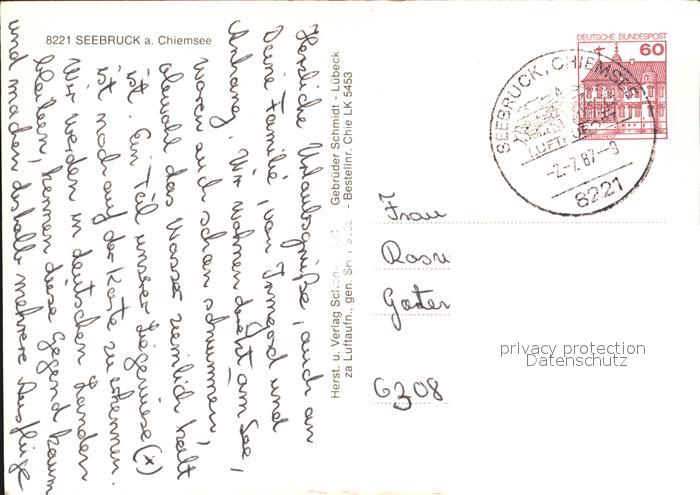 8221 SEEBRUCK a. Chiemsee
Herzliche Urlaubsgrüße, auch an
Deine Familie, von Irmgard und
Anhang. Wir wohnen direkt am See,
waren auch schon schwimmen,
obwohl das Wasser ziemlich kalt
ist. Ein Teil unserer Liegewiese (x)
ist noch auf der Karte zu erkennen.
Wir werden in deutschen Landen
bleiben, kennen diese Gegend kaum
und machen deshalb mehrere Ausflüge
Herst. u. Verlag Gebrüder Schmidt - Lübeck
za Luftaufn., gen. SH - Bestellnr. Chie LK 5453
DEUTSCHE BUNDESPOST
60
SEEBRUCK, CHIEMSEE
LUFTKURORT
-2.-7.87.-9
8221
Frau
Gater
6308
privacy protection
Datenschutz